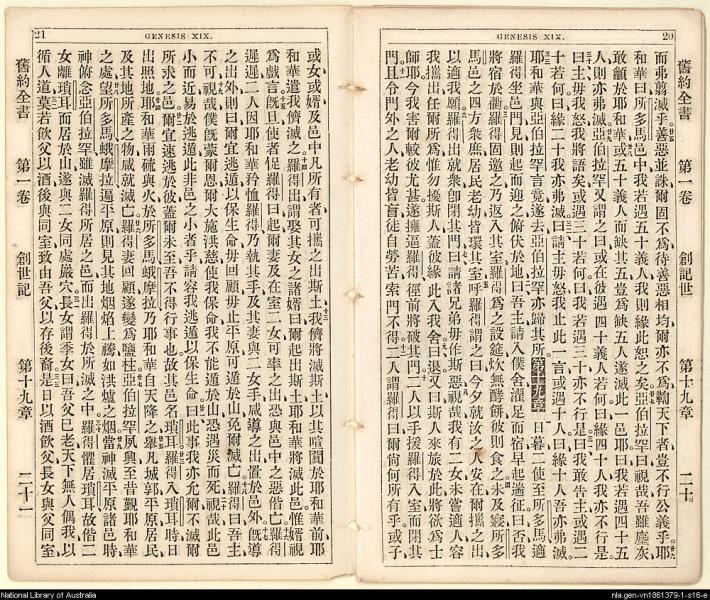 GENESIS XIX.
20
舊約全書 第一卷 創記世 第十九章 二十
而弗翦滅乎善惡並誅爾固不為待善惡相均爾亦不為鞫天下者豈不行公義乎耶
和華曰所多馬邑中我若遇五十義人我則緣此恕之矣亞伯拉罕曰視哉吾雖塵灰
敢籲於耶和華或五十義人而缺其五豈為缺五人遂滅此一邑耶曰我若遇四十五
人則亦弗滅亞伯拉罕又謂之曰或在彼遇四十義人若何曰緣四十人我亦不行是
曰主毋我怒我將語矣或遇三十若何曰我若遇三十亦不行是曰我敢告主或遇二
十若何曰緣二十我亦弗滅曰請主毋怒我止此一言或遇十人曰緣十人吾亦弗滅
耶和華與亞伯拉罕言竟遂去亞伯拉罕亦歸其所第十九章日暮二使至所多馬適
羅得坐邑門見則起而迎之俯伏於地曰吾主請入僕舍濯足而宿早起遄征曰否我
將宿於衢羅得固邀之乃返入其室羅得為之設筵炊無酵餅彼則食之未及寢所多
馬邑之四方衆庶居民老幼皆環其室呼羅得謂之曰今夕就汝之人安在爾攜之出
以適我願羅得出就衆卽閉其門曰請諸兄弟毋作斯惡視哉我有二女未嘗適人容
我攜出任爾所為惟勿擾斯人蓋彼緣此入我舍曰退又曰斯人來旅於此將欲為士
師耶今我害爾較彼尤甚遂擁逼羅得徑前將破其門二人以手援羅得入室而閉其
門且令門外之人老幼皆盲徒自勞苦索門不得二人謂羅得曰爾尙何所有乎或子
21
GENESIS XIX.
或女或婿及邑中凡所有者可攜之出斯土我儕將滅斯土以其喧聞於耶和華前耶
和華遣我儕滅之羅得出謂娶其女之諸婿曰爾起出斯土耶和華將滅此邑惟婿視
為戲言旣旦使者促羅得曰起爾妻及在室二女可率之出恐與邑中之惡偕亡羅得
遲遲二人因耶和華矜恤羅得乃執其手及其妻與二女手咸導之出置於邑外旣導
之出外則曰爾宜逃遁以保生命毋回顧毋止平原可遁於山免爾滅亡羅得曰吾主
不可視哉僕旣蒙爾恩爾大施洪慈使我保命我不能遁於山恐遇災而死視哉此邑
小而近易於逃遁此非邑之小者乎請容我逃遁以保生命曰此事我亦允爾不滅爾
所求之邑爾宜速逃於彼蓋爾未至吾不得行事也故其邑名瑣耳羅得入瑣耳時日
出照地耶和華雨硫與火於所多馬蛾摩拉乃耶和華自天降之舉凡城郭平原居民
及其地所產之物咸就滅亡羅得妻回顧遂變為鹽柱亞伯拉罕夙興至昔覲耶和華
之處望所多馬蛾摩拉遍平原則見其地烟焰上騰如洪爐之烟當神滅平原諸邑時
神俯念亞伯拉罕雖滅羅得所居之邑而出羅得於所滅之中羅得懼居瑣耳故偕二
女離瑣耳而居於山遂與二女同處巖穴長女謂季女曰吾父已老天下無人偶我以
循人道莫若飲父以酒後與同室致由吾父以存後裔是日以酒飲父長女與父同室
舊約全書 第一卷 創世記 第十九章 二十一
National Library of Australia
nla.gen-vn1861379-1-s16-e